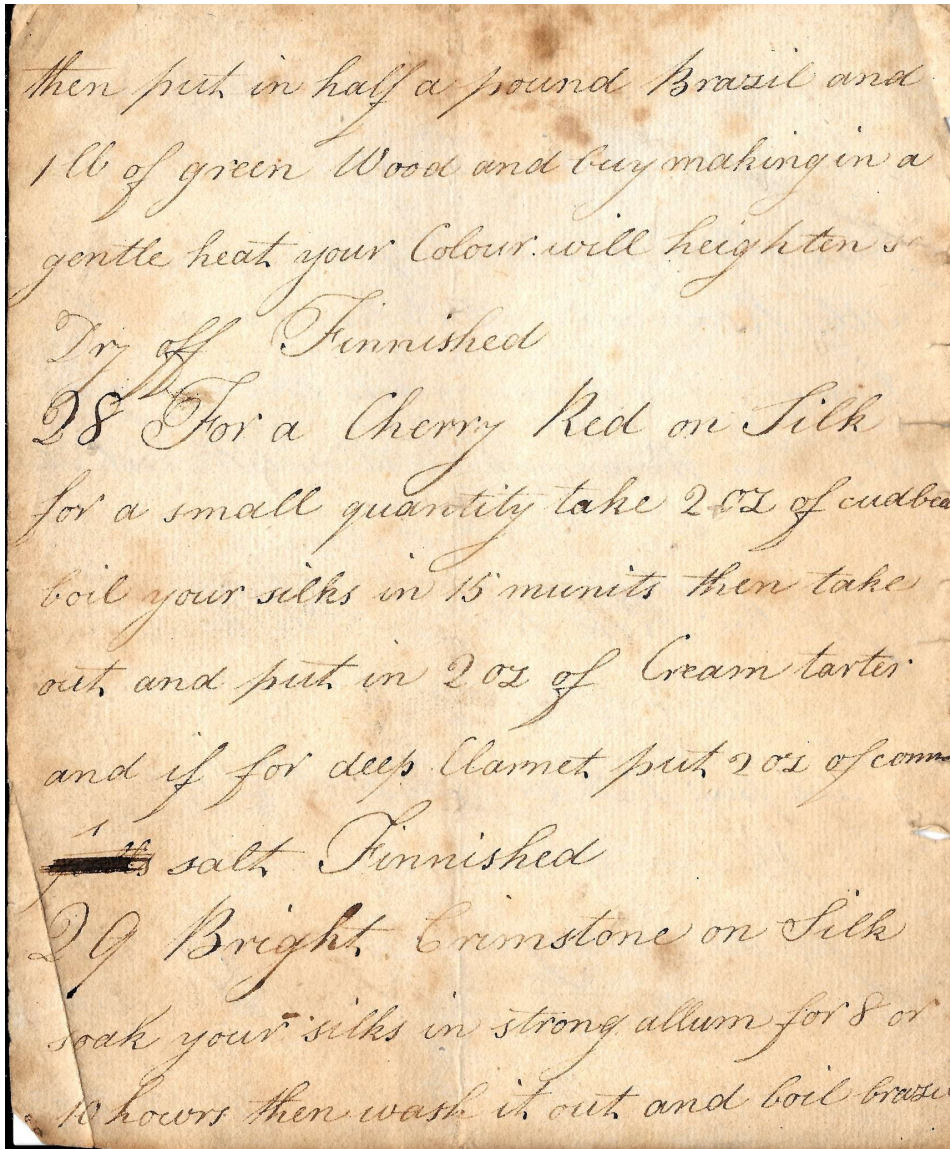 then put in half a pound Brazil and
1 lb of green Wood and buy making in a
gentle heat your Colour will heighten so
Dry off Finnished
28 For a Cherry Red on Silk
for a small quantity take 2 oz of cudbea
boil your silks in 15 munits then take
out and put in 2 oz of Cream tarter
and if for deep Clarnet put 2 oz of comm
salt Finnished
29 Bright Crimstone on Silk
soak your silks in strong allum for 8 or
10 howrs then wash it out and boil brazi